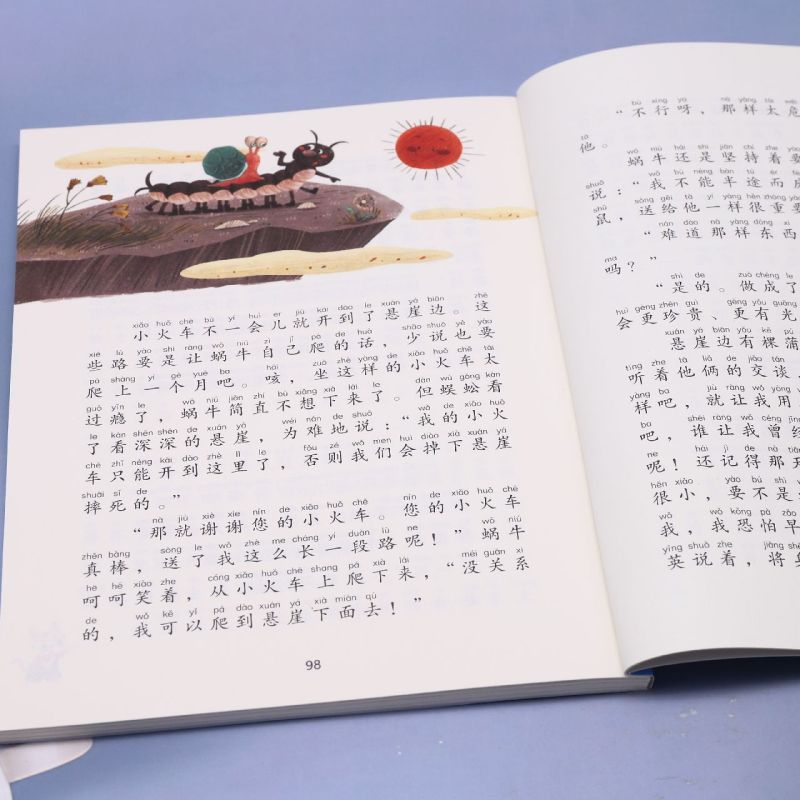 小火车不一会儿就开到了悬崖边。这
些路要是让蜗牛自己爬的话，少说也要
爬上一个月吧。咳，坐这样的小火车太
过瘾了，蜗牛简直不想下来了。但蜈蚣看
了看深深的悬崖，为难地说：“我的小火
车只能开到这里了，否则我们会掉下悬崖
摔死的。”
“那就谢谢您的小火车。您的小火车
真棒，送了我这么长一段路呢！”蜗牛
呵呵笑着，从小火车上爬下来，“没关系
的，我可以爬到悬崖下面去！”
98
“不行呀，那样太危
他。
蜗牛还是坚持着要
说：“我不能半途而
鼠，送给他一样很重要
“难道那样东西
吗？”
“是的。做成了
会更珍贵、更有光
悬崖边有棵蒲
听着他俩的交谈，
样吧，就让我用
吧，谁让我曾经
呢！还记得那天
很小，要不是
我，我恐怕早
英说着，将